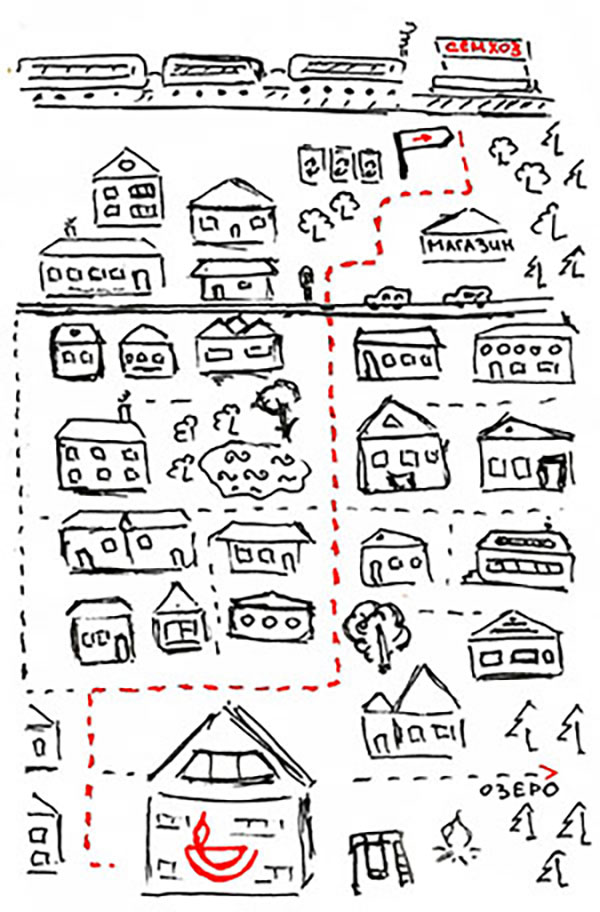 СЕМХОЗ
МАГАЗИН
ОЗЕРО